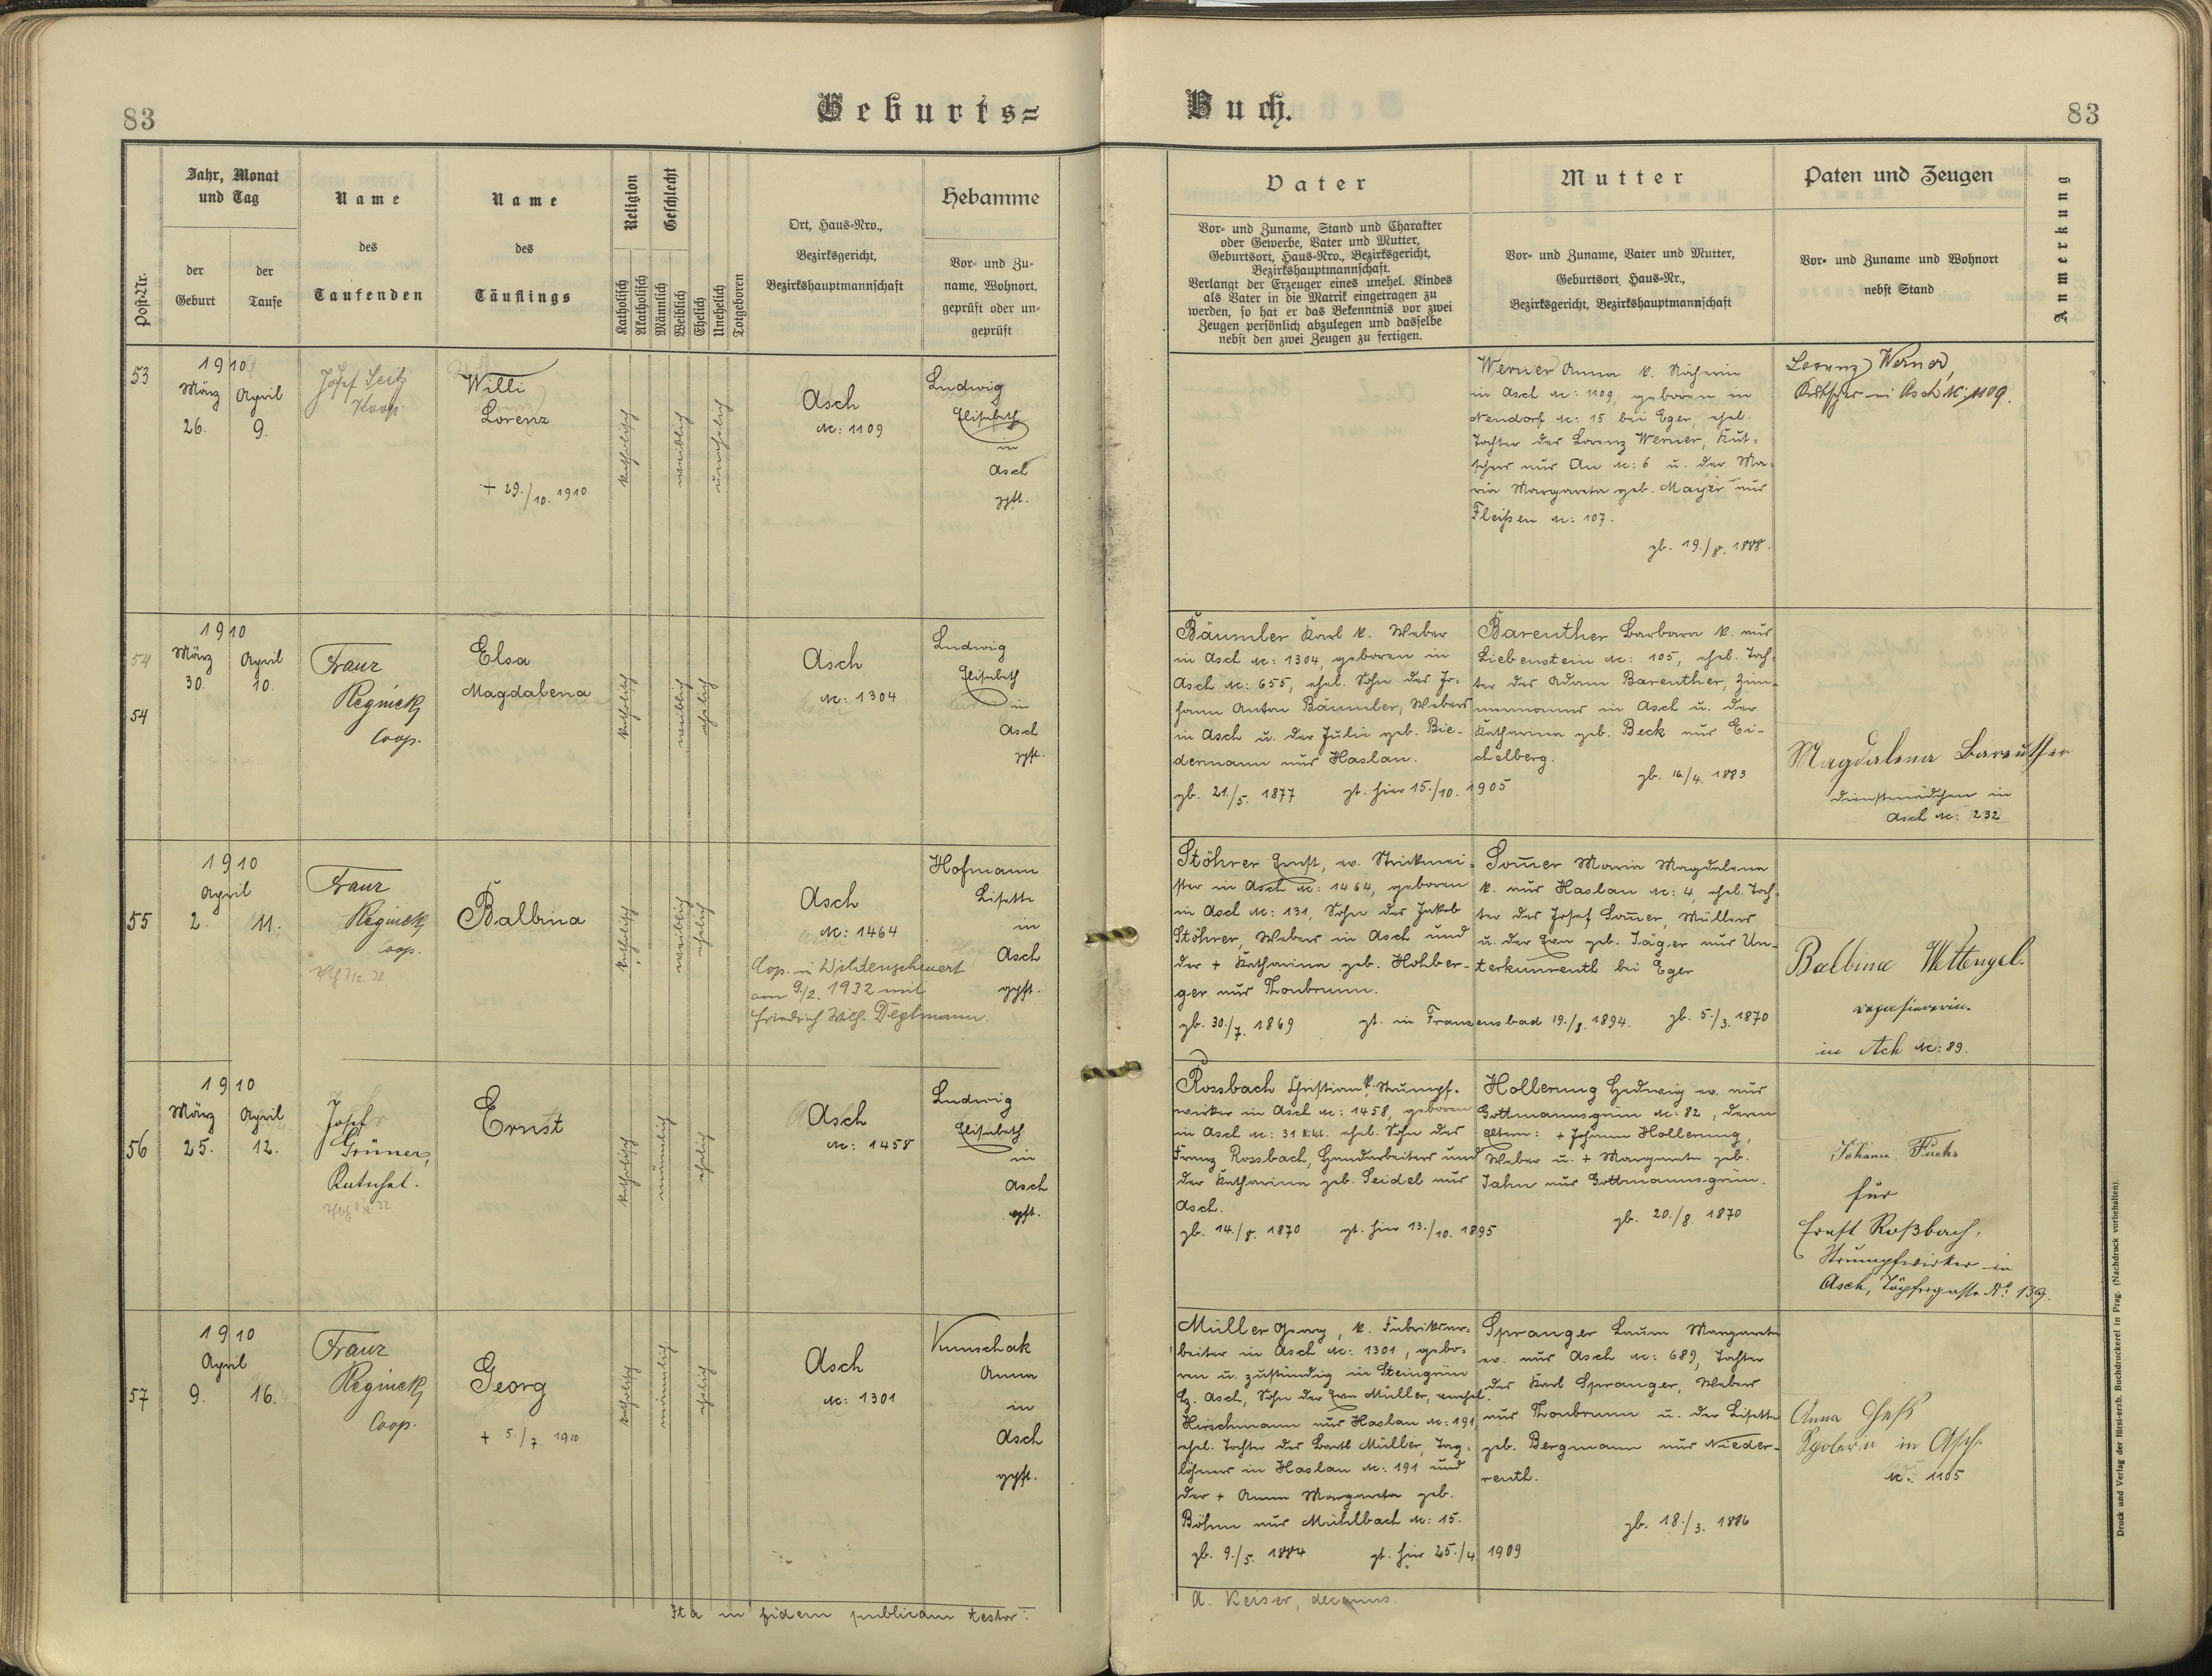 83
Geburts=
Buch.
83
Post-Nr.
Jahr, Monat
und Tag
der
Geburt
der
Taufe
Name
des
Taufenden
Name
des
Täuflings
Religion
Katholisch
Akatholisch
Geschlecht
Männlich
Weiblich
Ehelich
Unehelich
Totgeboren
Ort, Haus-Nro.,
Bezirksgericht,
Bezirkshauptmannschaft
Hebamme
Vor- und Zu-
name, Wohnort,
geprüft oder un-
geprüft
Vater
Vor- und Zuname, Stand und Charakter
oder Gewerbe, Vater und Mutter,
Geburtsort, Haus-Nro., Bezirksgericht,
Bezirkshauptmannschaft.
Verlangt der Erzeuger eines unehel. Kindes
als Vater in die Matrik eingetragen zu
werden, so hat er das Bekenntnis vor zwei
Zeugen persönlich abzulegen und dasselbe
nebst den zwei Zeugen zu fertigen.
Mutter
Vor- und Zuname, Vater und Mutter,
Geburtsort, Haus-Nr.,
Bezirksgericht, Bezirkshauptmannschaft
Paten und Zeugen
Vor- und Zuname und Wohnort
nebst Stand
Anmerkung
53
1910
März
26.
April
9.
Josef Seitz
Koop.
Willi
Lorenz
+ 29./10. 1910
katholisch
weiblich
unehelich
Asch
N: 1109
Ludwig
Elisabeth
in
Asch
gpft.
Werner Anna k. Näherin
in Asch N: 1109, geboren in
Nendorf N: 15 bei Eger, ehel.
Tochter des Lorenz Werner, Kut-
schers aus Au N: 6 u. der Ma-
ria Margareta geb. Mayer aus
Fleißen N: 107.
gb. 19./8. 1888.
Lorenz Werner,
Kutscher in Asch N: 1109.
54
54
1910
März
30.
April
10.
Franz
Reginek
Coop.
Elsa
Magdalena
katholisch
weiblich
ehelich
Asch
N: 1304
Ludwig
Elisabeth
in
Asch
gpft.
Bäumler Karl k. Weber
in Asch N: 1304, geboren in
Asch N: 655, ehel. Sohn des Jo-
hann Anton Bäumler, Webers
in Asch u. der Julie geb. Bie-
dermann aus Haslau.
gb. 21./5. 1877 gt. hier 15./10. 1905
Bareuther Barbara k. aus
Liebenstein N: 105, ehel. Toch-
ter des Adam Bareuther, Zim-
mermanns in Asch u. der
Katharina geb. Beck aus Ei-
chelberg.
gb. 16/4. 1883
Magdalena Bareuther
Dienstmädchen in
Asch N: 232
55
1910
April
2.
11.
Franz
Reginek
Coop.
Balbina
katholisch
weiblich
ehelich
Asch
N: 1464
Cop. in Wildenschwert
am 9./2. 1932 mit
Friedrich Wilh. Deglmann.
Hofmann
Lisette
in
Asch
gpft.
Stöhrer Ernst, ev. Strickmei-
ster in Asch N: 1464, geboren
in Asch N: 131, Sohn des Jakob
Stöhrer, Webers in Asch und
der + Katharina geb. Hohber-
ger aus Thonbrunn.
gb. 30./7. 1869 gt. in Franzensbad 19./8. 1894.
Somer Maria Magdalena
k. aus Haslau N: 4, ehel. Toch-
ter des Josef Somer, Müllers
u. der Eva geb. Jäger aus Un-
terkunreuth bei Eger
gb. 5./3. 1870
Balbina Wettengel.
repassiererin.
in Asch N: 89.
56
1910
März
25.
April
12.
Josef
Grüner,
Katechet.
Ernst
katholisch
männlich
ehelich
Asch
N: 1458
Ludwig
Elisabeth
in
Asch
gpft.
Rossbach Christian k. Strumpf-
wirker in Asch N: 1458, geboren
in Asch N: 31 Nikl. ehel. Sohn des
Franz Rossbach, Handarbeiters und
der Katharina geb. Seidel aus
Asch.
gb. 14./8. 1870 gt. hier 13./10. 1895
Hollerung Hedwig ev. aus
Gottmannsgrün N: 82, deren
Eltern: + Johann Hollerung,
Weber u. + Margareta geb.
Jahn aus Gottmannsgrün.
gb. 20./8. 1870
Johann Fuchs
für
Ernst Roßbach,
Strumpfwirker in
Asch, Töpfergasse No 139.
57
1910
April
9.
16.
Franz
Reginek
Coop.
Georg
+ 5./7. 1910
katholisch
männlich
ehelich
Asch
N: 1301
Kunschak
Anna
in
Asch
gpft.
Müller Georg, k. Fabriksar-
beiter in Asch N: 1301, gebo-
ren u. zuständig in Steingrün
Bz. Asch, Sohn der Eva Müller, verehel.
Hirschmann aus Haslau N: 191,
ehel. Tochter des Bartl Müller, Tag-
löhners in Haslau N: 191 und
der + Anna Margareta geb.
Böhm aus Mühlbach N: 15.
gb. 9./5. 1884 gt. hier 25./4. 1909
Spranger Laura Margareta
ev. aus Asch N: 689, Tochter
des Karl Spranger, Webers
aus Thonbrunn u. der Lisette
geb. Bergmann aus Nieder-
reuth.
gb. 18./3. 1886
Anna
Spolerin in Asch.
N: 1105
Ita in fidem publicam testor:
A. Keiser, decanus.
Druck und Verlag der fürst-erzb. Buchdruckerei in Prag. (Nachdruck vorbehalten).